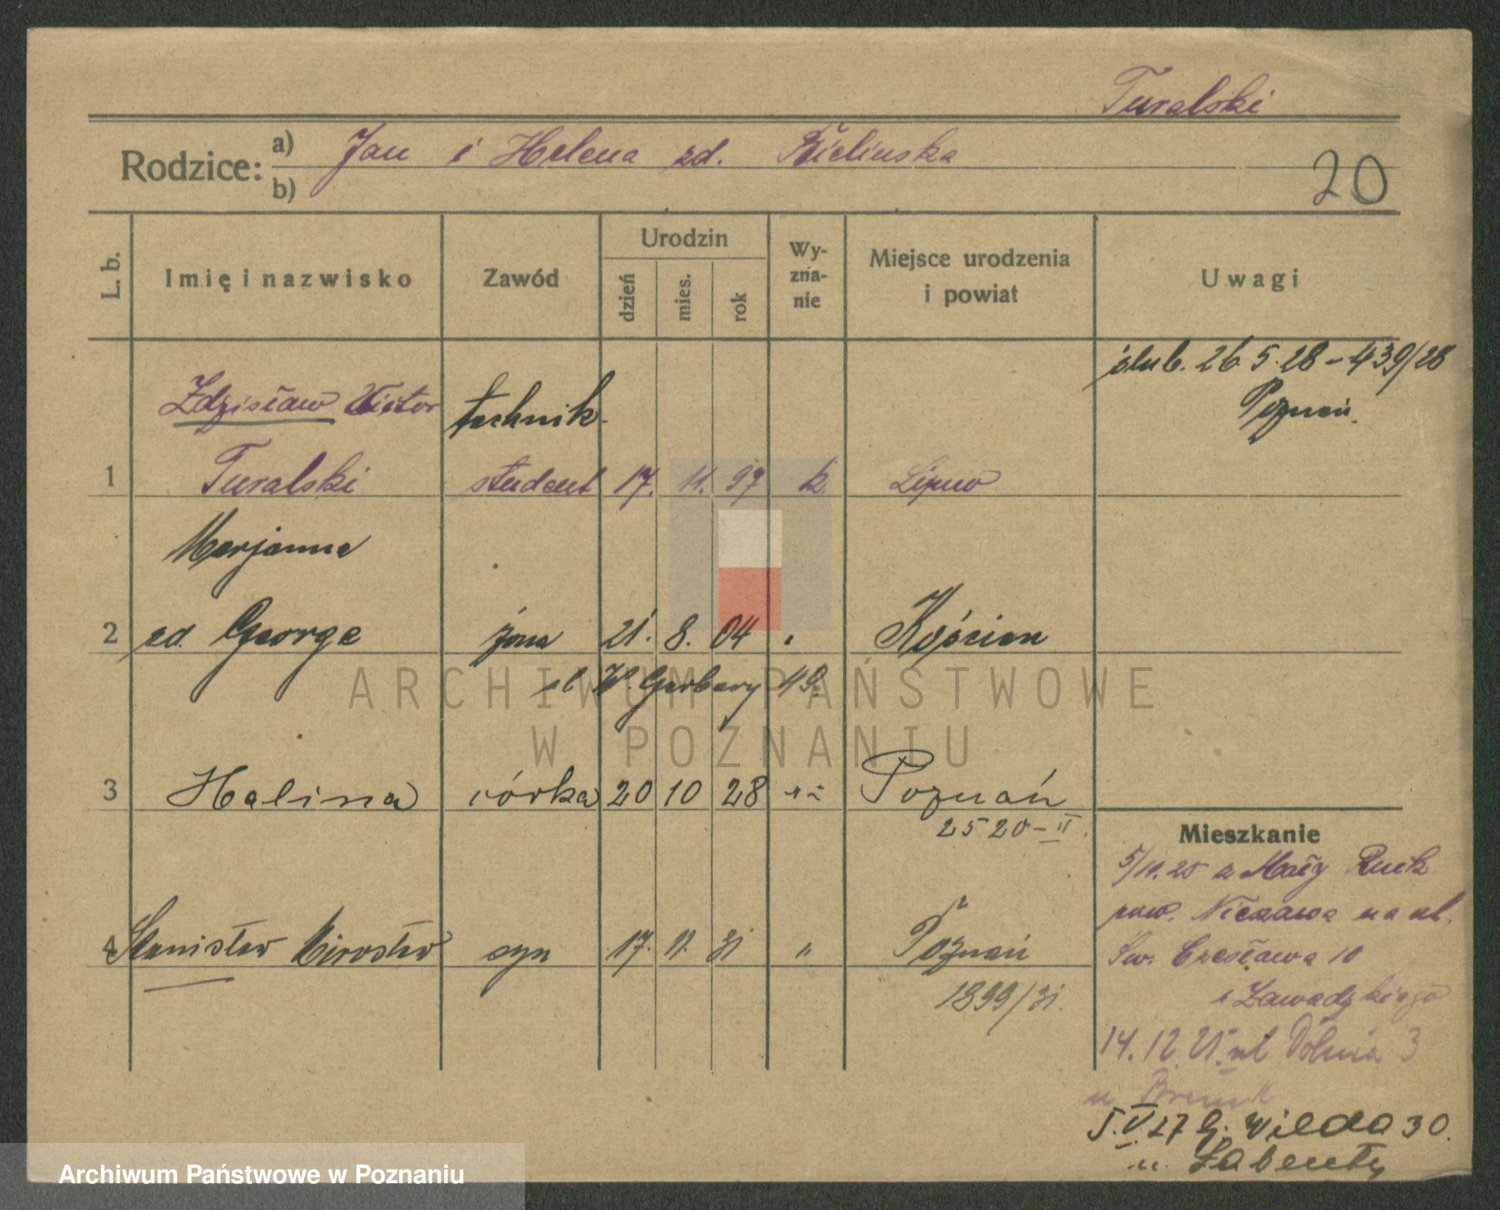 Turalski
Rodzice: a) Jan i Helena zd. Bielinska
b)
20
L. b. Imię i nazwisko Zawód Urodzin dzień mies. rok Wy-zna-nie Miejsce urodzenia i powiat Uwagi
ślub. 26.5.28 - 439/28
Poznań.
Zdzisław Wiktor technik
1 Turalski student 17. 11. 97 k. Lipno
Marjanna
2 zd. George żona 21. 8. 04 " Kościan
ul. W. Garbary 49
ARCHIWUM PAŃSTWOWE
W POZNANIU
3 Halina córka 20 10 28 Poznań
2520-II.
Mieszkanie
5/11.25 z Mały
pow. Nieszawa na ul.
Św. Czesława 10
Zawadzkiego
4 Stanisław Mirosław syn 17. 11. 31 " Poznań
1899/31.
14.12.25 ul Dolina 3
u
5.V.27 G. Wilda 30.
u.
Archiwum Państwowe w Poznaniu